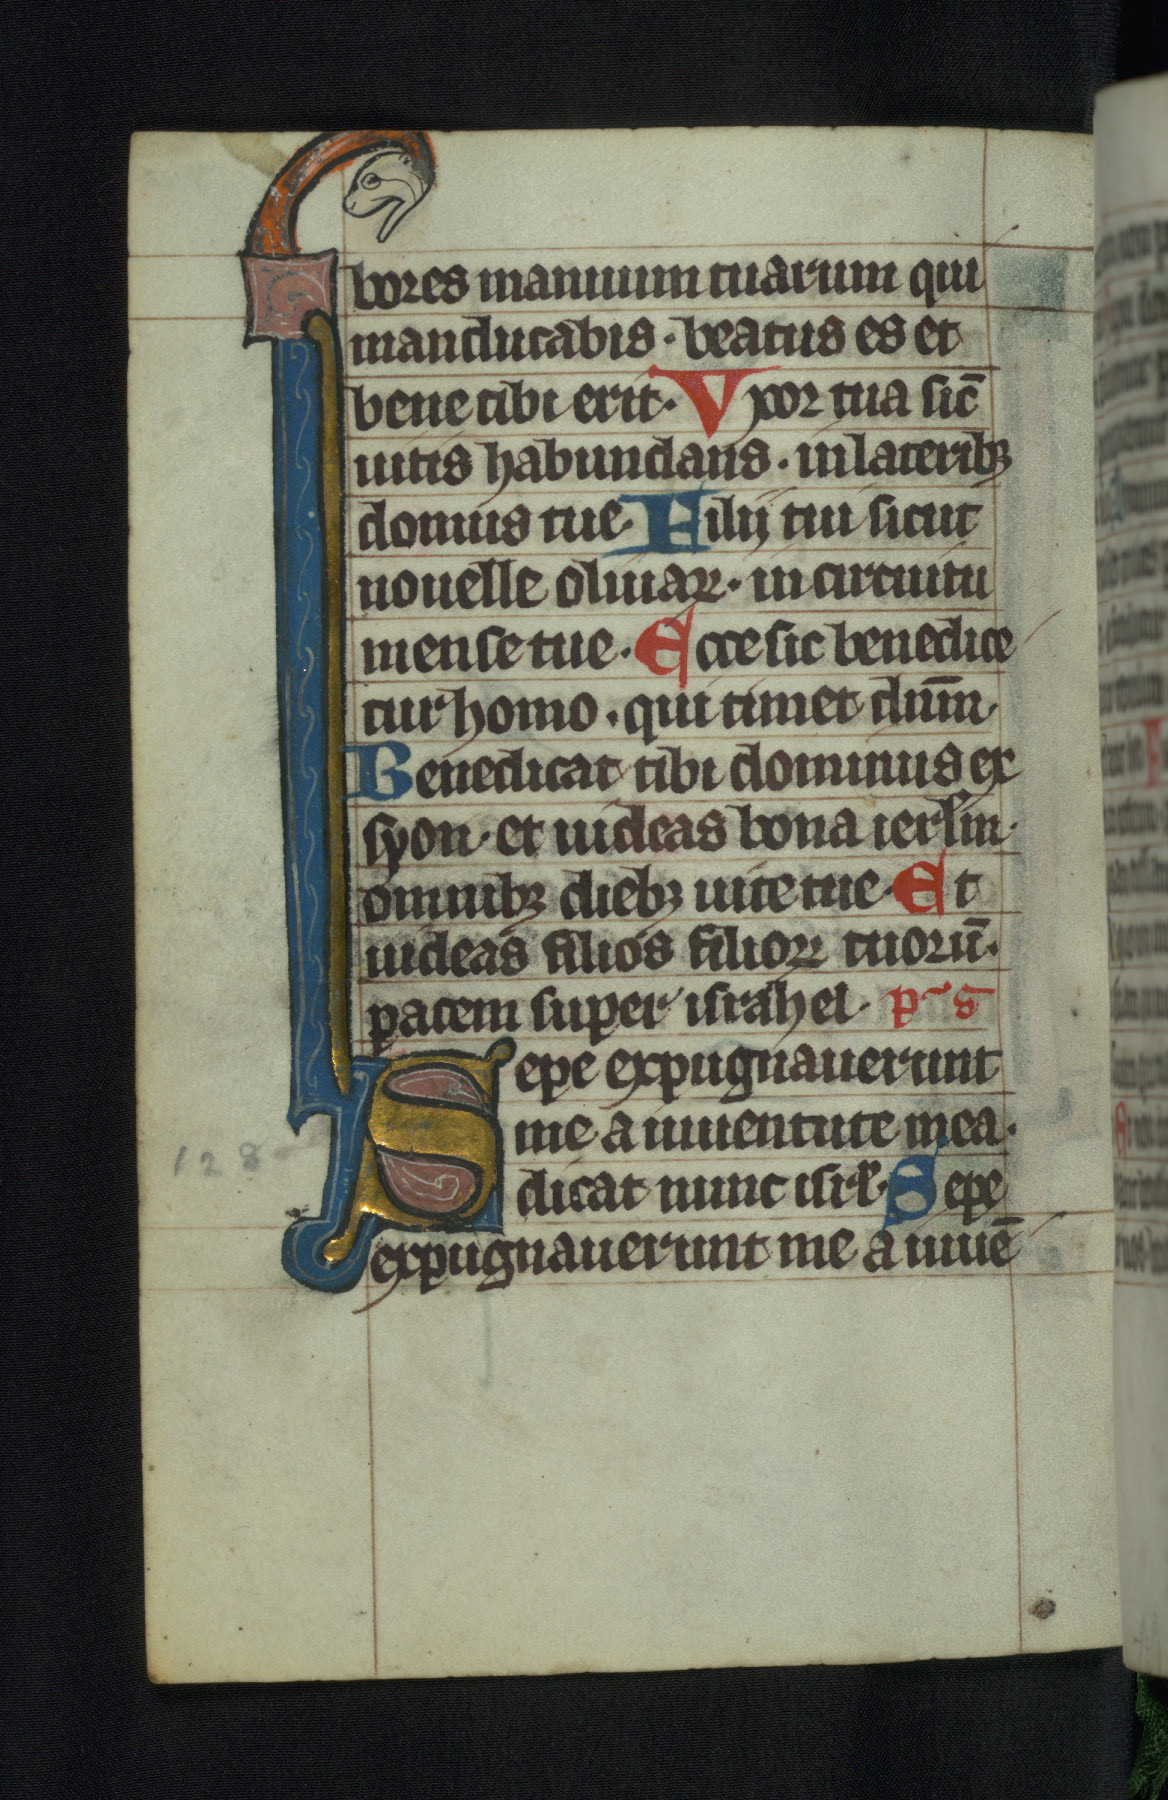 bores manuum tuarum qui
manducabis · beatus es et
bene tibi erit · Vxor tua sic̄
uitis habundans · in laterib⁊
domus tue · Filij tui sicut
nouelle oliuaꝝ · in circuitu
mense tue · Ecce sic benedice
tur homo · qui timet dn̄m ·
Benedicat tibi dominus ex
syon · et uideas bona ierl̄m ·
omnib⁊ dieb⁊ uite tue · Et
uideas filios filioꝝ tuorū ·
pacem super israhel · p̄s
Sepe expugnauerunt
me a iuuentute mea ·
dicat nunc isrl̄ · Sepe
expugnauerunt me a iuuē
128